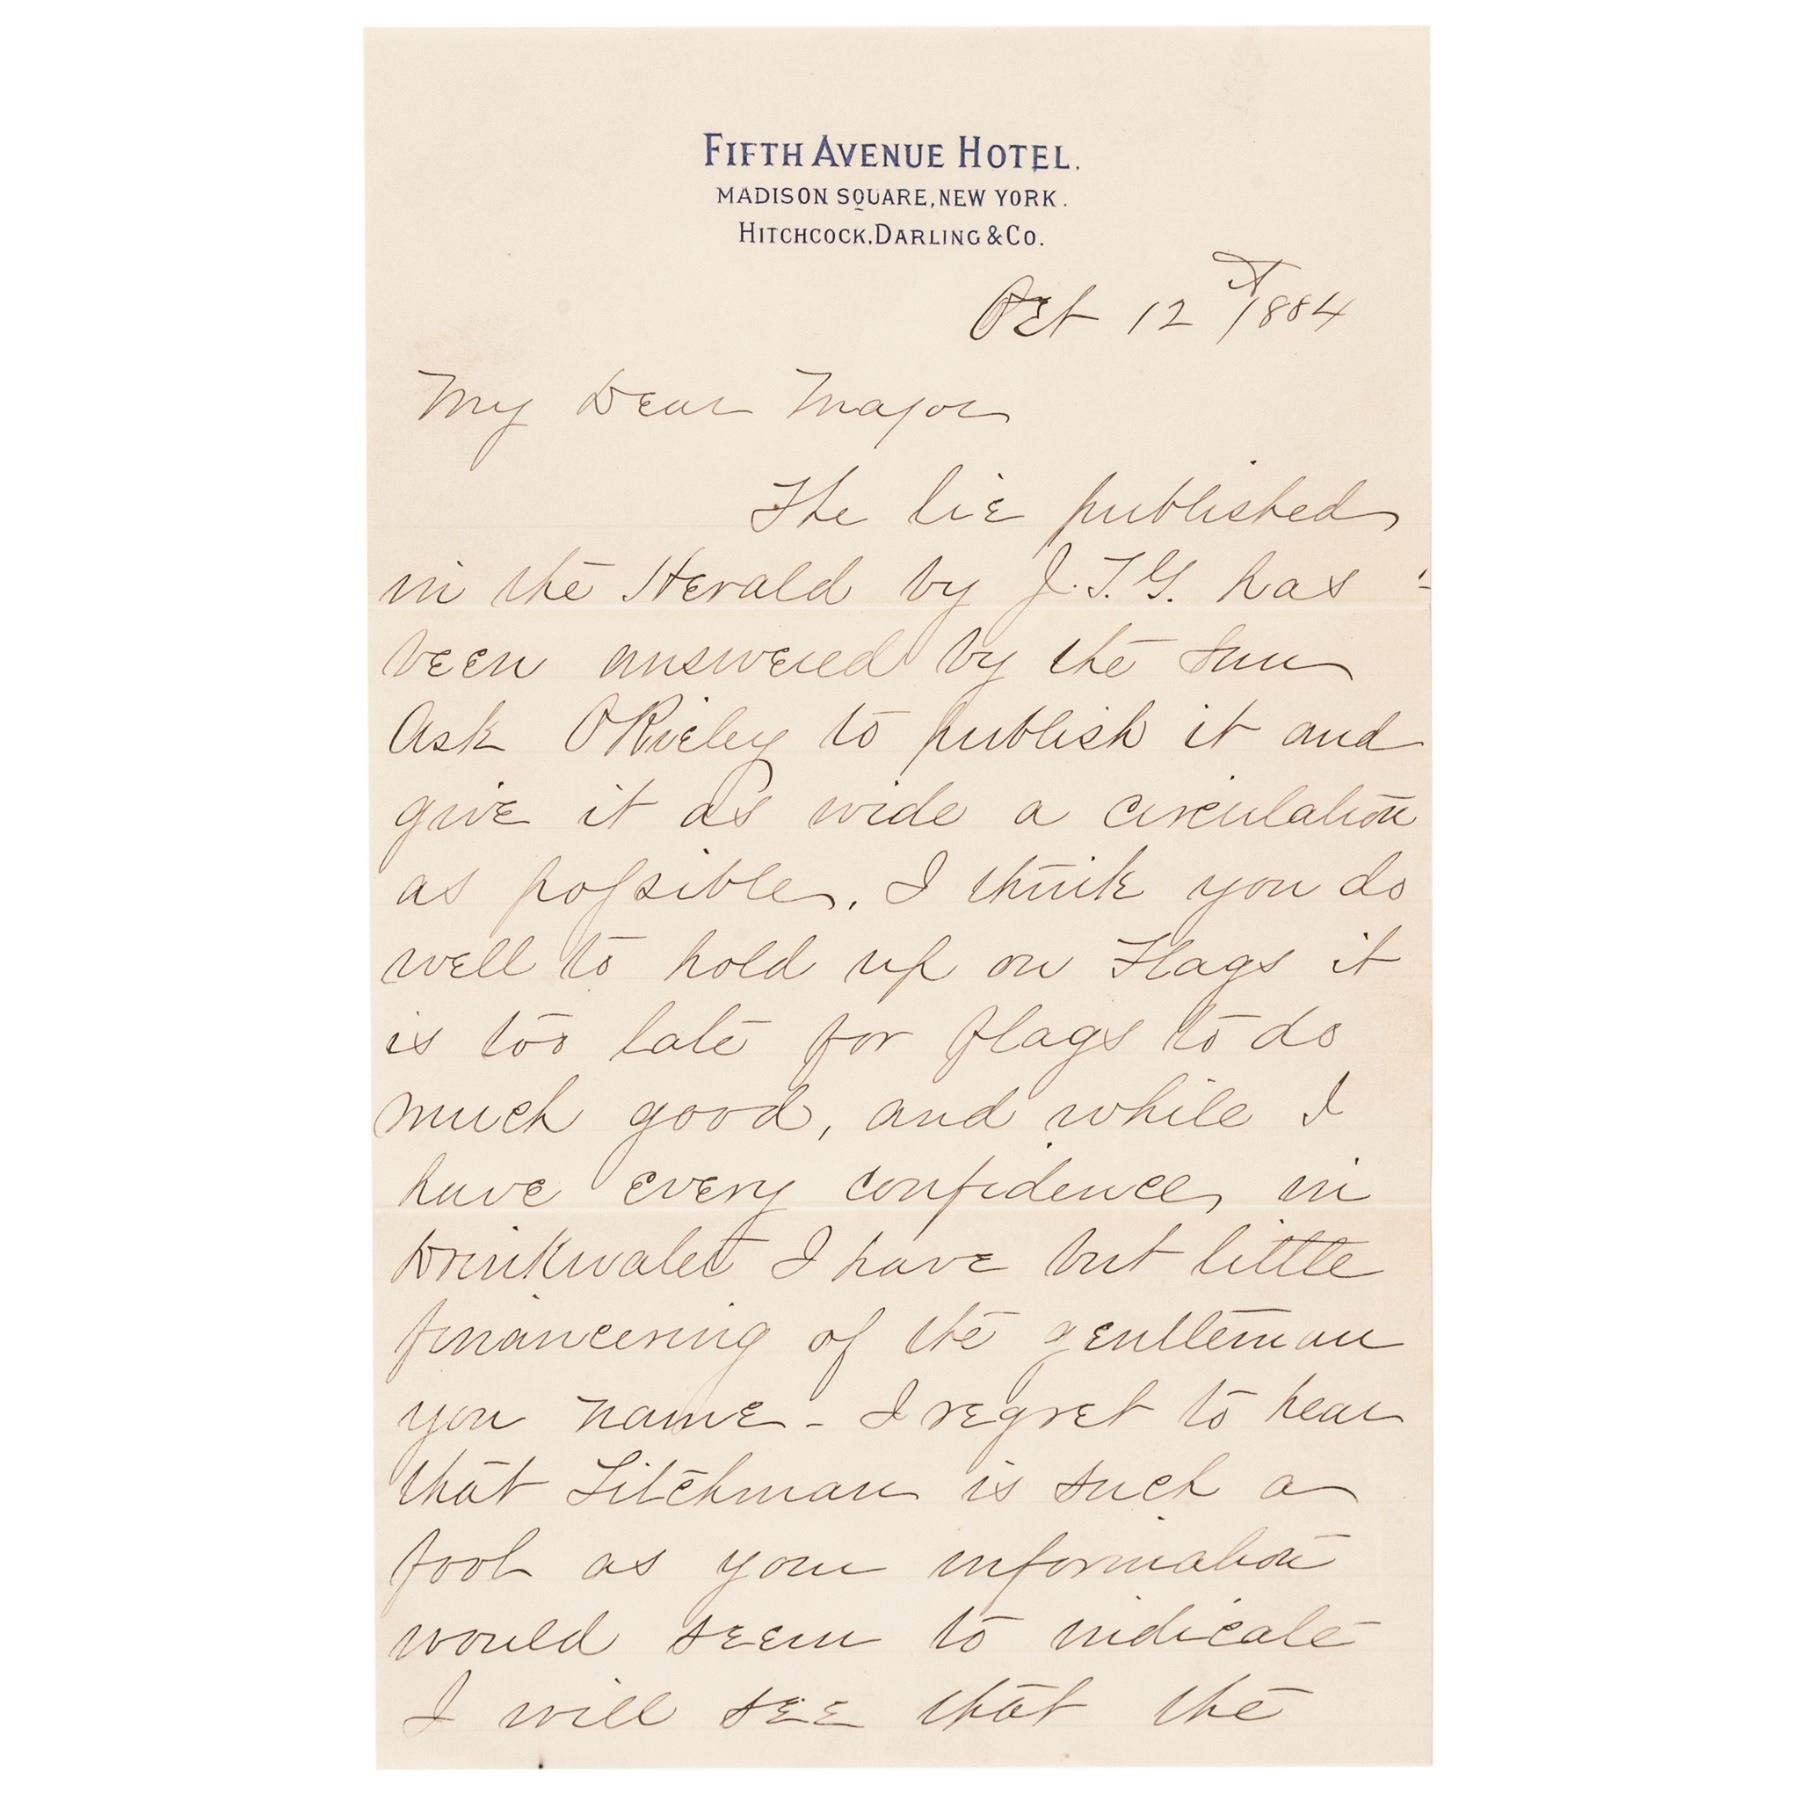 FIFTH AVENUE HOTEL.
MADISON SQUARE, NEW YORK.
HITCHCOCK, DARLING & CO.
Oct 12th 1884
My Dear Major
The lie published
in the Herald by J. T. G. has
been answered by the Sun
Ask O'Rieley to publish it and
give it as wide a circulation
as possible. I think you do
well to hold up on Flags it
is too late for flags to do
much good, and while I
have every confidence in
Drinkwater I have but little
financeering of the gentleman
you name - I regret to hear
that Litchman is such a
fool as your information
would seem to indicate
I will see that the